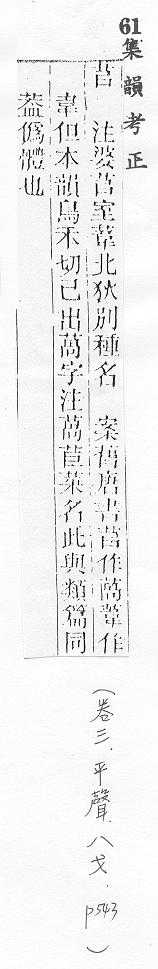 61集韻考正
萻　注婆萻室韋北狄別種名　案舊唐書萻作萵韋作
韋但本韻烏禾切已出萵字注萵苣菜名此與類篇同
葢僞體也
(卷三、平聲、八戈、p543)